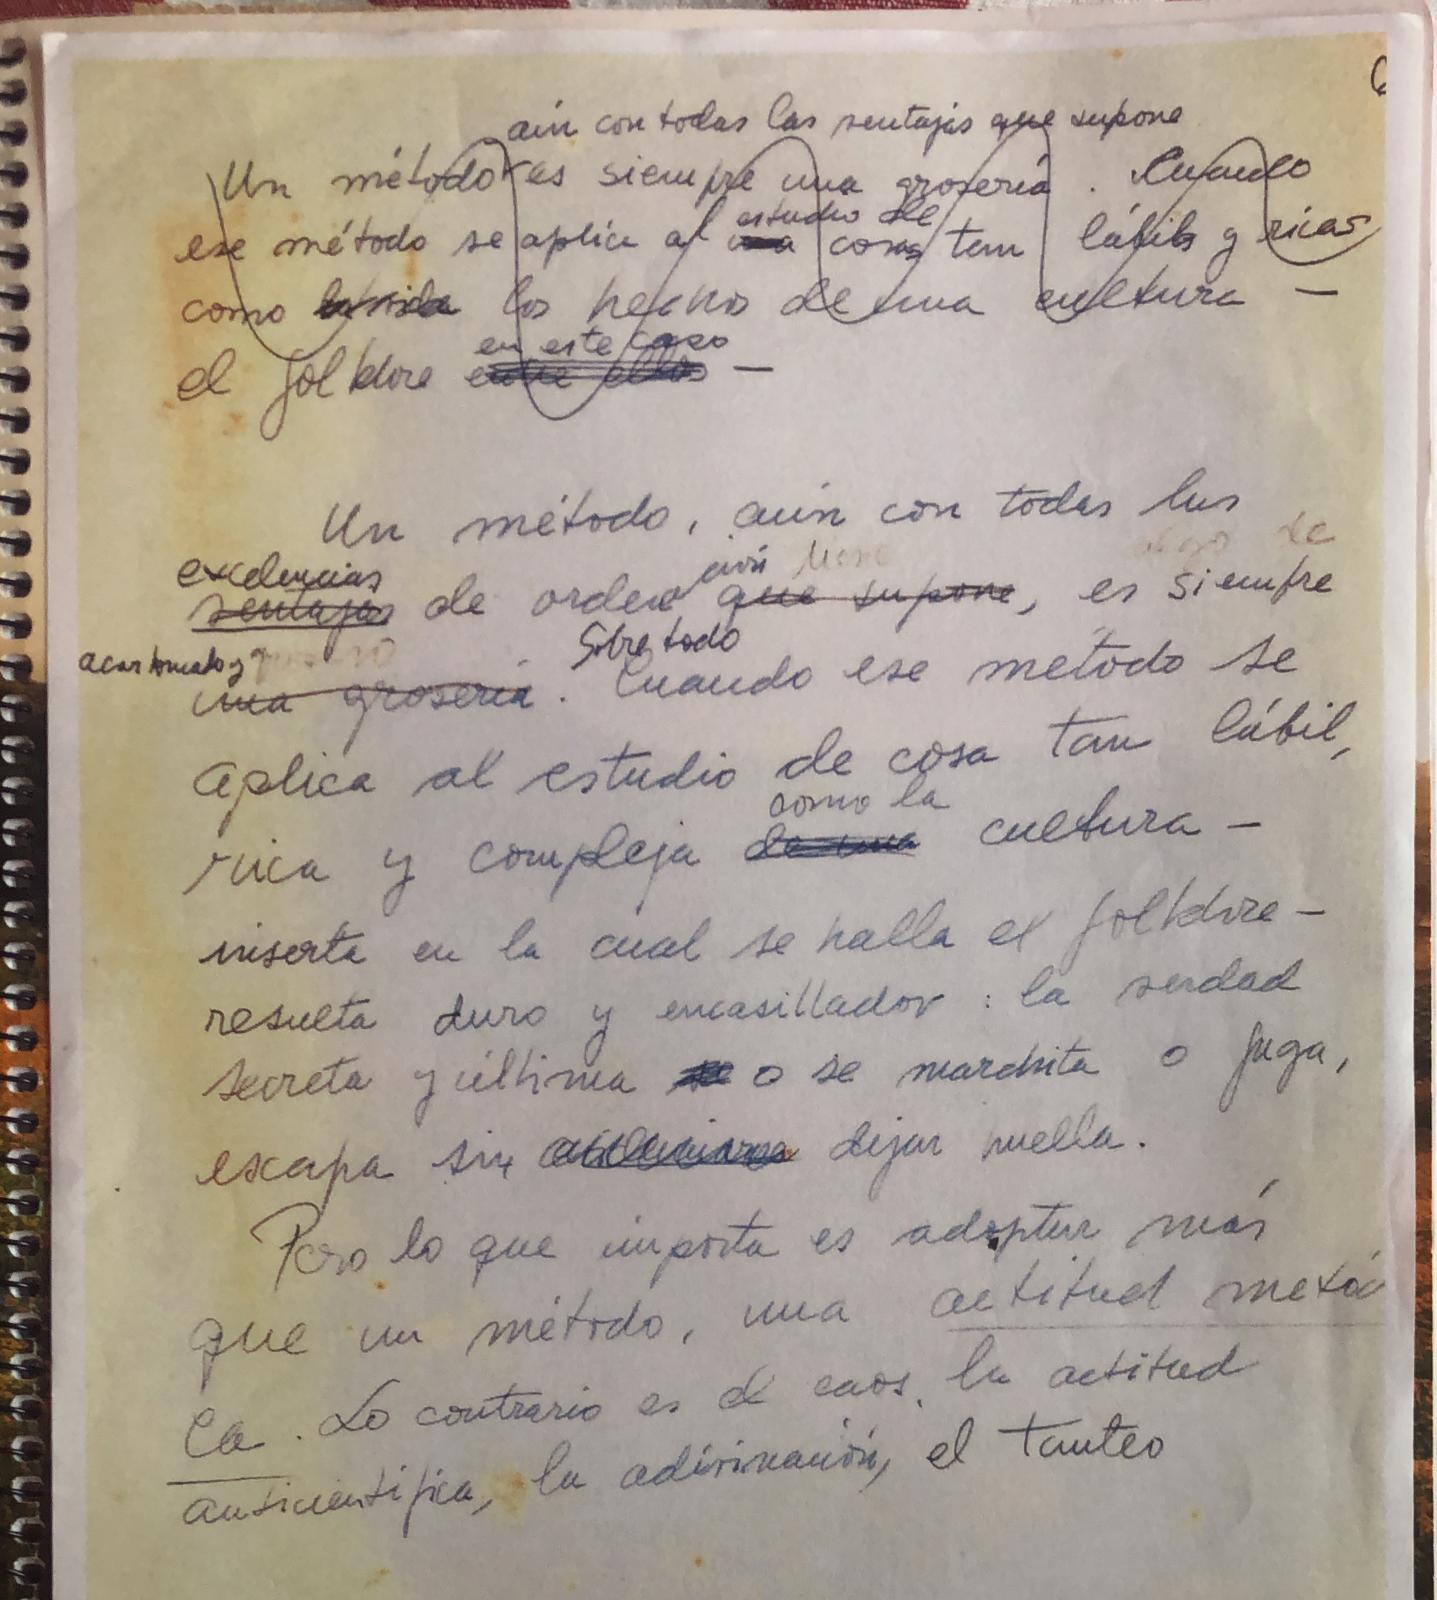 aún con todas las ventajas que supone
Un método es siempre una grosería. Cuando
estudio de
ese método se aplica al una cosas tan lábiles y ricas
como la vida los hechos de una cultura —
en este caso
el folklore entre ellos —
Un método, aún con todas las
algo de
excelencias ción
ventajas de orden que supone, es siempre
acartonado y
Sobre todo
una grosería. Cuando ese metodo se
aplica al estudio de cosa tan lábil,
como la
rica y compleja de una cultura —
inserta en la cual se halla el folklore —
resulta duro y encasillador: la verdad
secreta y última se o se marchita o fuga,
escapa sin dejar huella.
Pero lo que importa es adoptar más
que un método, una actitud metódi
ca. Lo contrario es el caos, la actitud
anticientífica, la adivinación, el tanteo